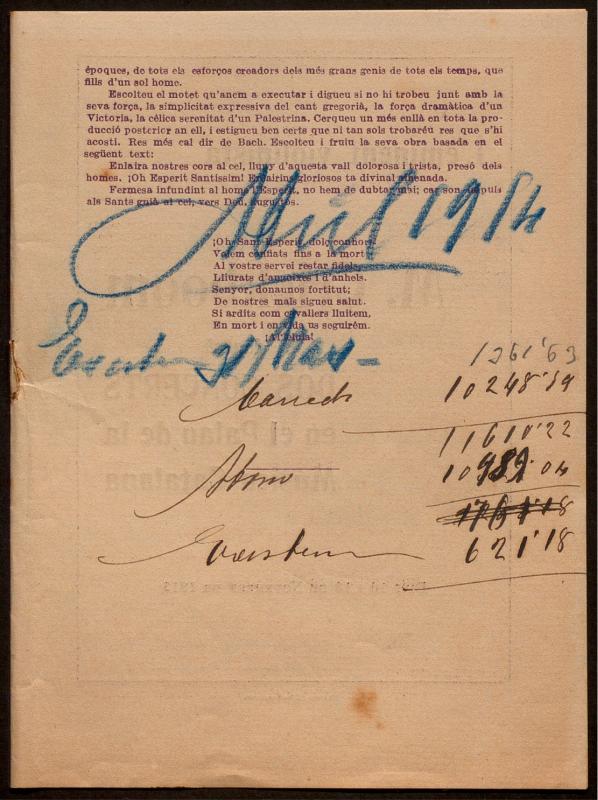 èpoques, de tots els esforços creadors dels més grans genis de tots els temps, que
fills d'un sol home.
Escolteu el motet qu'anem a executar i digueu si no hi trobeu junt amb la
seva força, la simplicitat expressiva del cant gregorià, la força dramàtica d'un
Victoria, la cèlica serenitat d'un Palestrina. Cerqueu un més enllà en tota la pro-
ducció posterior an ell, i estigueu ben certs que ni tan sols trobaréu res que s'hi
acosti. Res més cal dir de Bach. Escolteu i fruiu la seva obra basada en el
següent text:
Enlaira nostres cors al cel, lluny d'aquesta vall dolorosa i trista, presó dels
homes. ¡Oh Esperit Santíssim! gloriosos ta divinal
Fermesa infundint al home l'Esperit, no hem de dubtar mai; car son
als Sants guià al cel, vers Deu, Augustos.
Abril 1914
¡Oh Sant Esperit, dolç conhort,
Volem confiats fins a la mort
Al vostre servei restar fidels,
Lliurats d'angoixes i d'anhels.
Senyor, donaunos fortitut;
De nostres mals sigueu salut.
Si ardits com cavallers lluitem,
En mort i en vida us seguirém.
¡Al·leluia!
31/Mars
1361'63
10248'59
11610'22
10989'04
Abono
621'18